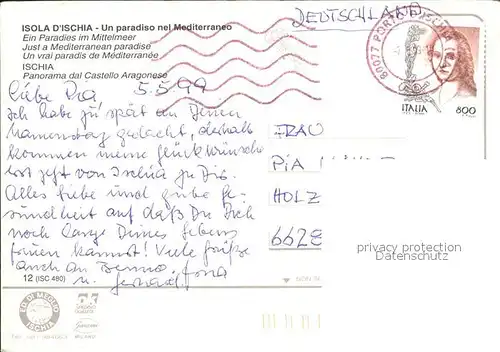 ISOLA D'ISCHIA - Un paradiso nel Mediterraneo
Ein Paradies im Mittelmeer
Just a Mediterranean paradise
Un vrai paradis de Méditerranée
ISCHIA
Panorama dal Castello Aragonese
5.5.99
Liebe Pia,
Ich habe zu spät an Deinen
Namenstag gedacht, deshalb
kommen meine Glückwünsche
erst jetzt von Ischia zu Dir.
Alles Liebe und gute Ge-
sundheit auf daß Du Dich
noch lange Deines Lebens
freuen kannst! Viele Grüße
auch an Benno,
u. Gerhard!
12 (ISC 480)
DEUTSCHLAND
80077 PORTO D'ISCHIA
ITALIA
800
FRAU
PIA
HOLZ
6628
privacy protection
Datenschutz
ED. DI MEGLIO
ISCHIA
MILANO